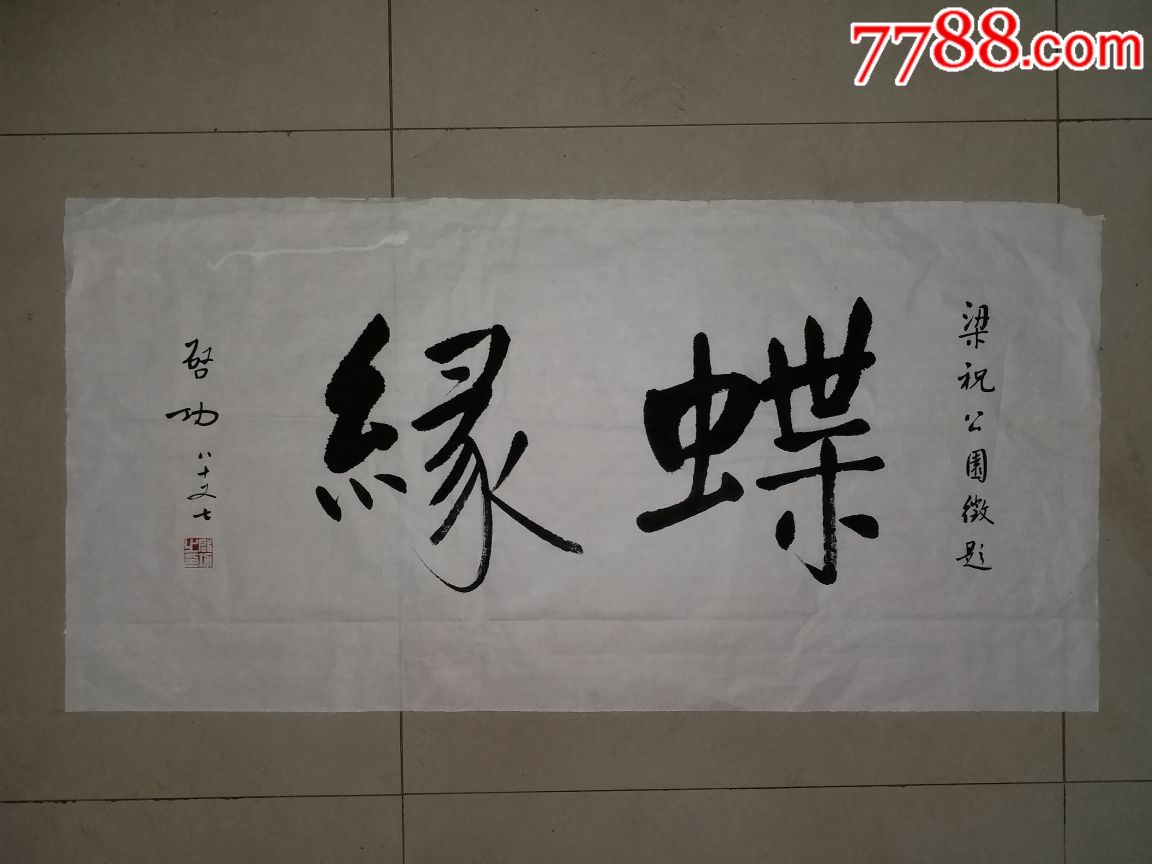 7788.com
梁祝公園徵題
蝶緣
啓功
八十又七